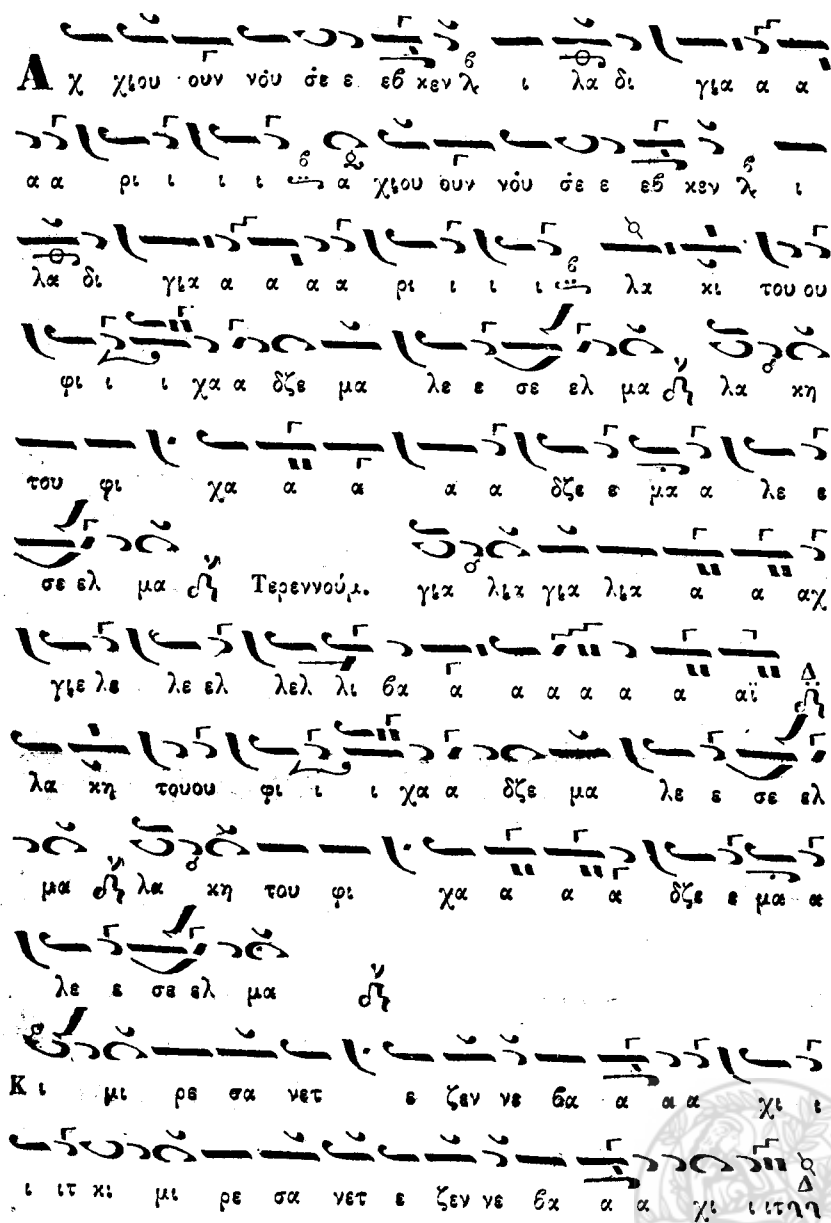 Α χ χιου ουν νόυ σὲ ε εβ κεν ι λα δι για α α
α α ρι ι ι ι α χιου ουν νόυ σὲ ε εβ κεν ι
λα δι για α α α α ρι ι ι ι λα κι του ου
φι ι ι χα α δζε μα λε ε σε ελ μα λα κη
του φι χα α α α α δζε ε μα α λε ε
σε ελ μα Τερεννούμ. για λια για λια α α αχ
γιε λε λε ελ λελ λι βα α α α α α α αϊ
λα κη τουου φι ι ι χα α δζε μα λε ε σε ελ
μα λα κη του φι χα α α α δζε ε μα α
λε ε σε ελ μα
Κ ι μι ρε σα νετ ε ζεν νε βα α α α χι ι
ι ιτ κι μι ρε σα νετ ε ζεν νε βα α α χι ι ιτ